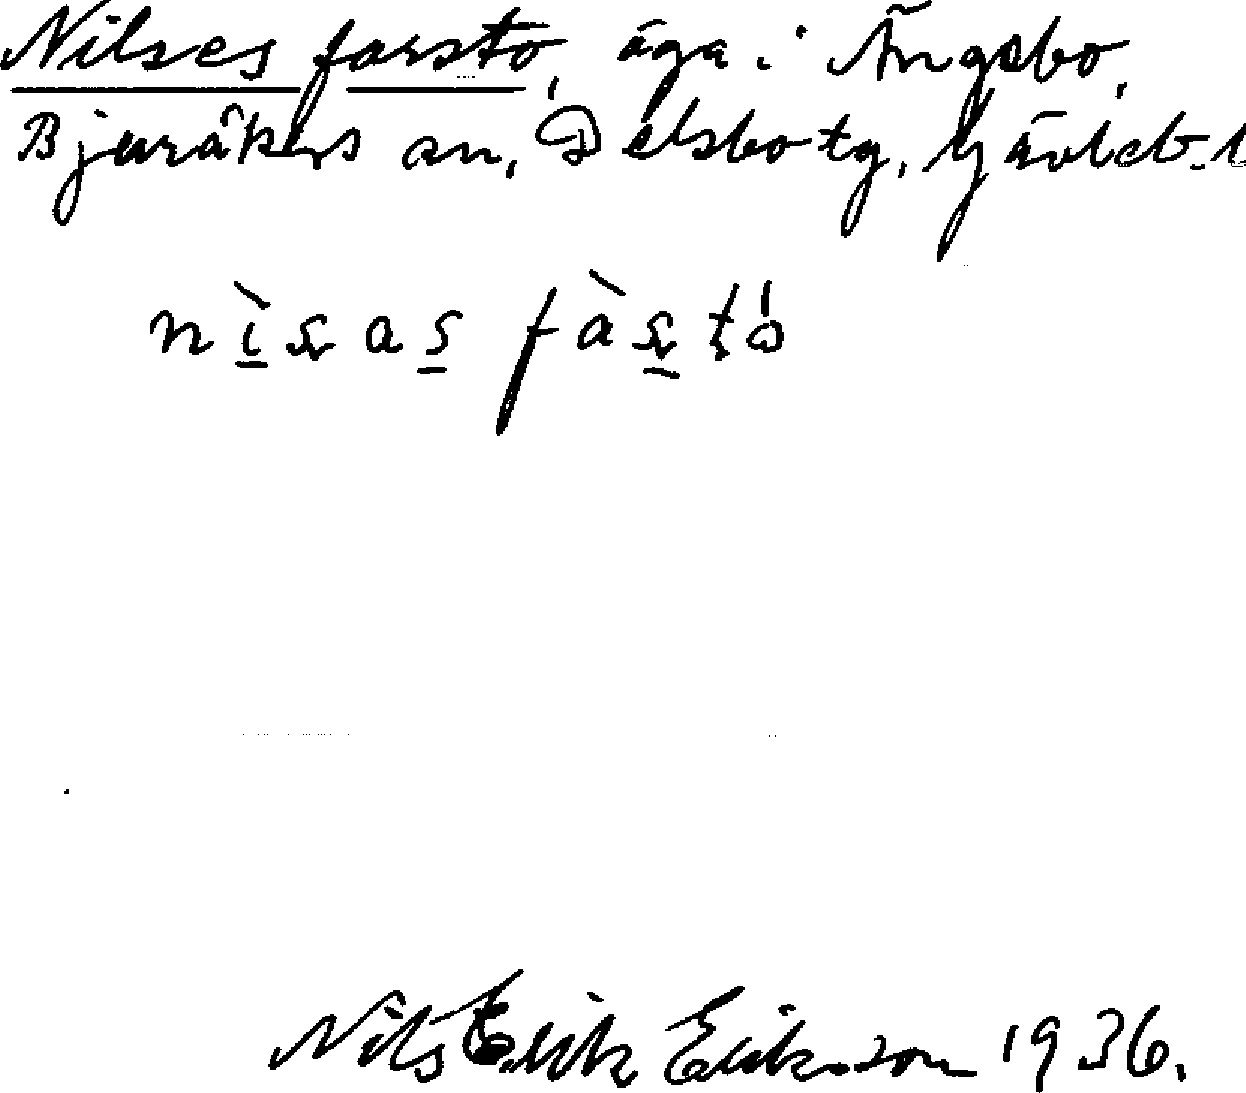 Nilses farsto, äga i Ängebo,
Bjuråkers sn, Delsbo tg, Gävleb. l
Nils Erik Eriksson 1936.